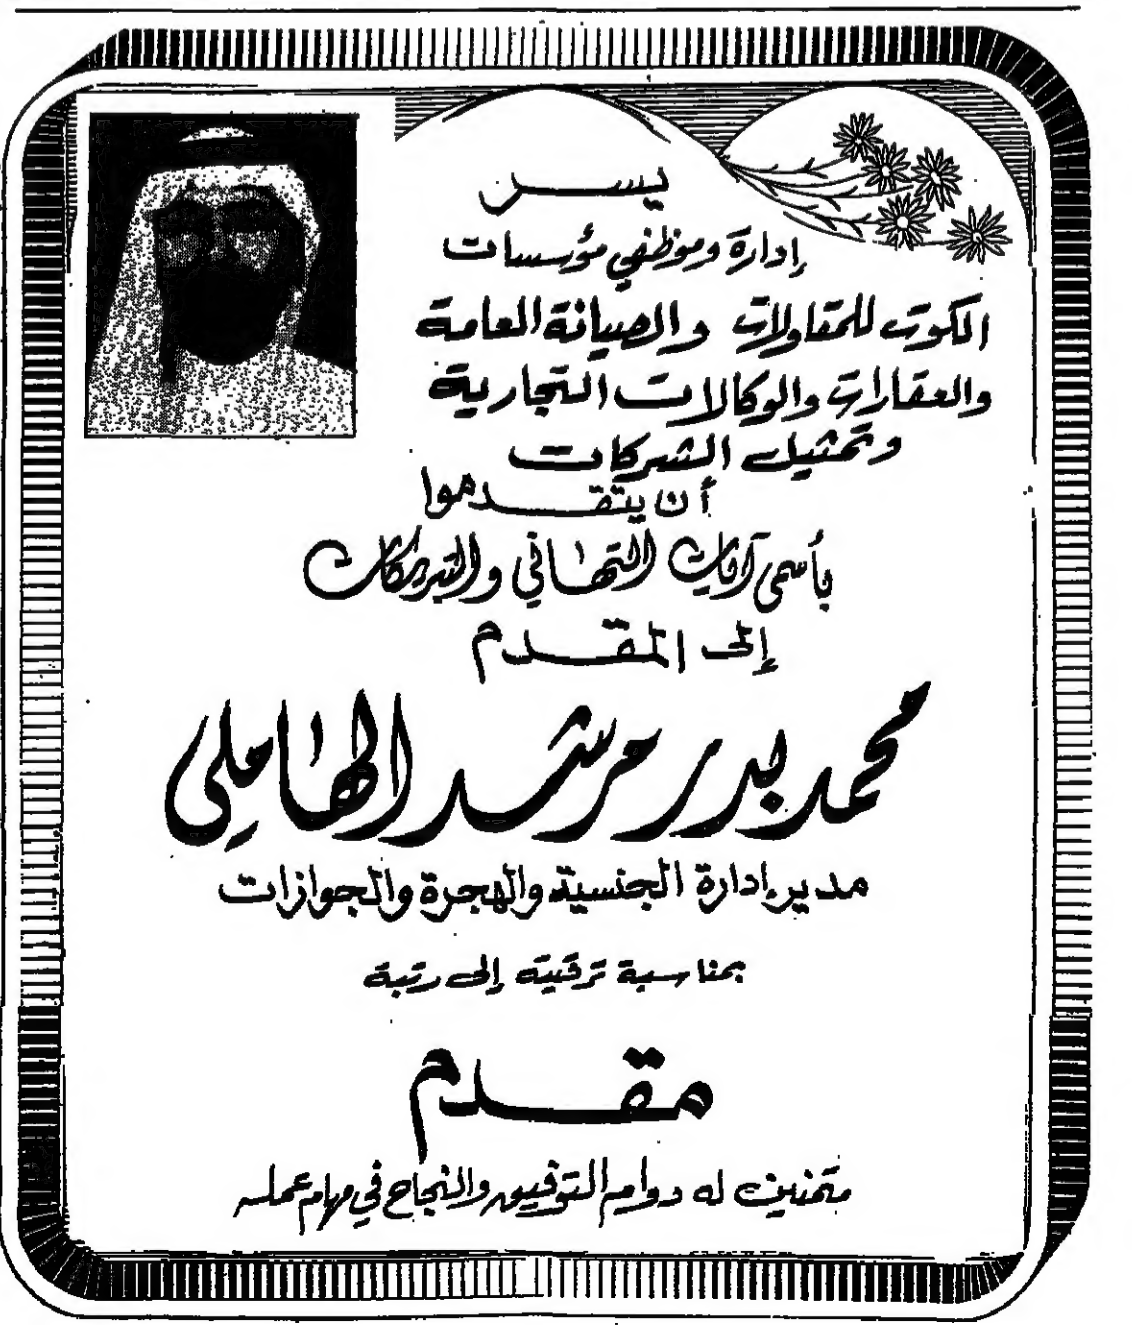 يسر
إدارة وموظفي مؤسسات
الكوت للمقاولات والصيانة العامة
والعقارات والوكالات التجارية
وتمثيل الشركات
أن يتقدموا
بأسمى آيات التهاني والتبريكات
إلى المقدم
محمد بدر مرشد الهاملي
مدير إدارة الجنسية والهجرة والجوازات
بمناسبة ترقيته إلى رتبة
مقدم
متمنين له دوام التوفيق والنجاح في مهام عمله